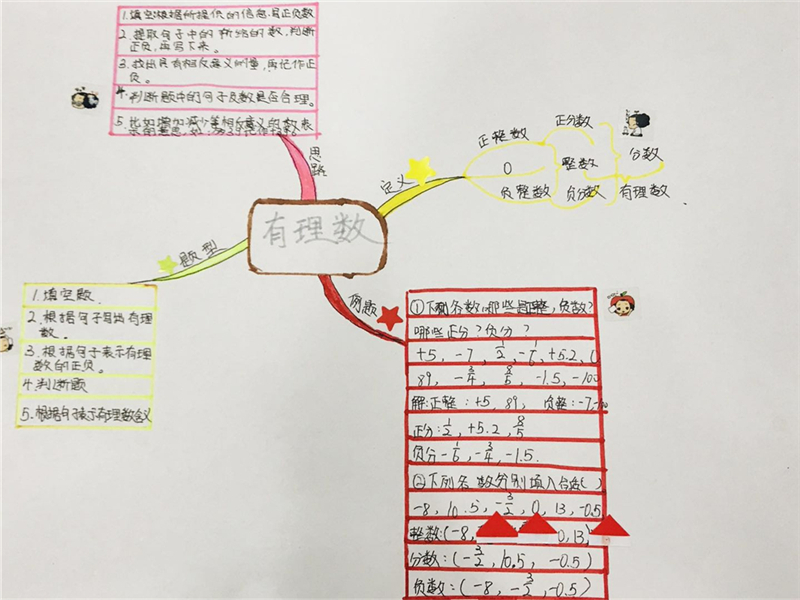 1.填空根据所提供的信息,写正负数
2.提取句子中的所给的数,判断
正负,再写下来。
3.找出具有相反意义的量,再记作正
负。
4.判断题中的句子及数是否合理。
5.比如增加减少等相反意义的数表
思路
定义
正整数
0
负整数
正分数
整数
负分数
分数
有理数
有理数
题型
1.填空题.
2.根据句子写出有理
数。
3.根据句子表示有理
数的正负。
4.判断题
5.根据句子表示有理数含义
例题
①下列各数,哪些是正整,负数?
哪些正分?负分?
+5,-7,1/2,-1/6,+5.2,0
89,-3/4,8/5,-1.5,-100
解:正整:+5,89, 负整:-7,-100
正分:1/2,+5.2,8/5
负分-1/6,-3/4,-1.5.
②下列各数分别填入合适( )
-8,10.5,-3/2,0,13,-0.5
整数:(-8, 0,13)
分数:(-3/2,10.5, -0.5)
负数:(-8,-3/2,-0.5)